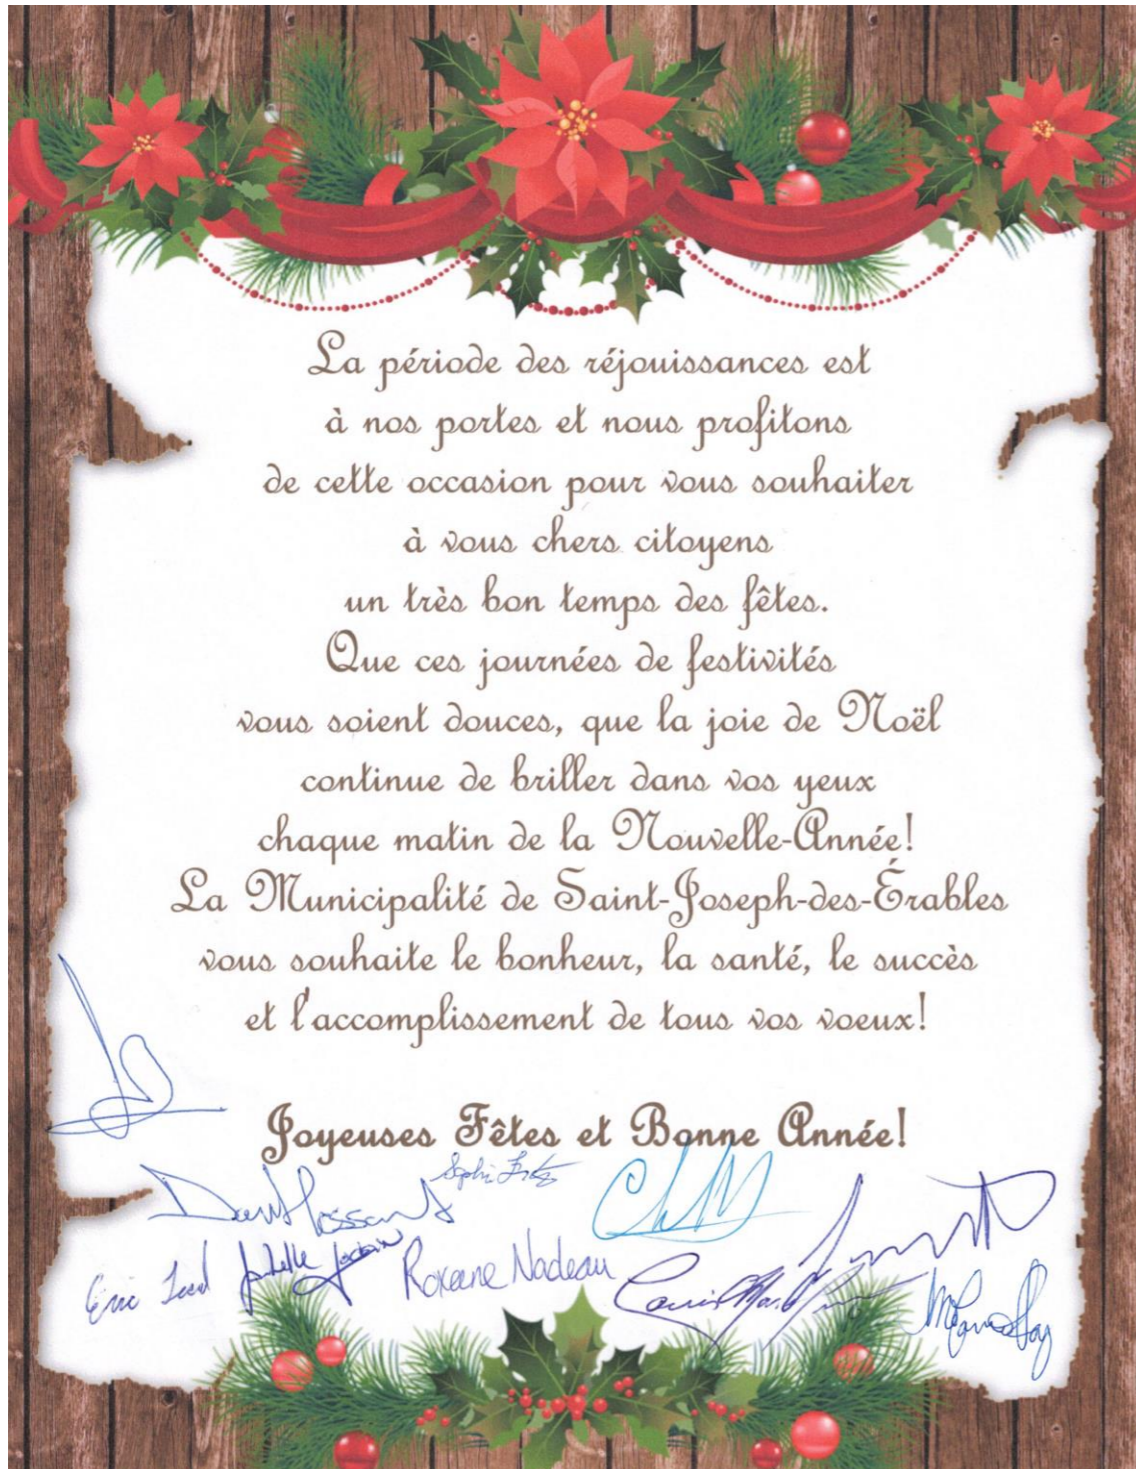 La période des réjouissances est
à nos portes et nous profitons
de cette occasion pour vous souhaiter
à vous chers citoyens
un très bon temps des fêtes.
Que ces journées de festivités
vous soient douces, que la joie de Noël
continue de briller dans vos yeux
chaque matin de la Nouvelle-Année!
La Municipalité de Saint-Joseph-des-Érables
vous souhaite le bonheur, la santé, le succès
et l'accomplissement de tous vos voeux!
Joyeuses Fêtes et Bonne Année!
Eric
Roxane Nadeau